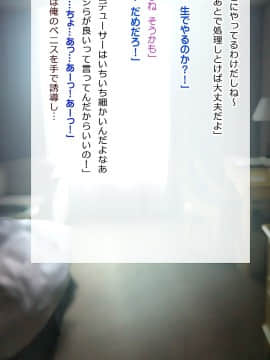 にやってるわけだしね～
あとで処理しとけば大丈夫だよ」
生でやるのか？！」
ね そうかも」
！ だめだろ！」
デューサーはいちいち細かいんだよなあ
らが良いって言ってんだからいいの！」
…ちょ…あっ…あーっ！あーっ！」
は俺のペニスを手で誘導し…